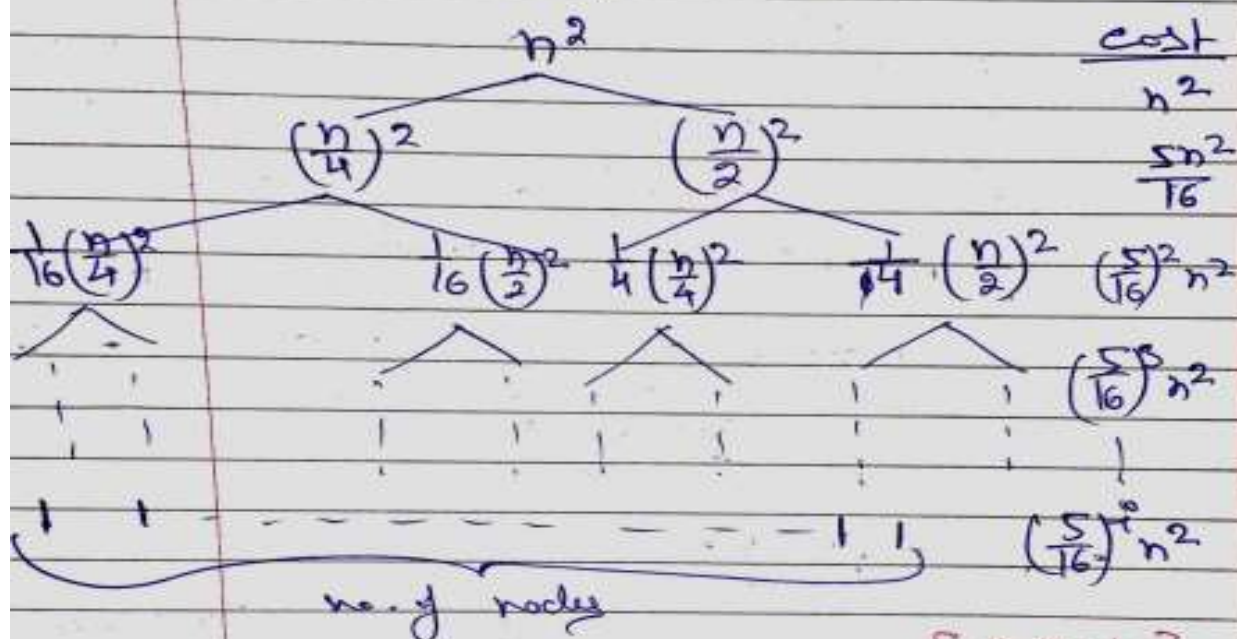 n² cost
n²
(n/4)² (n/2)² 5n²/16
1/16 (n/4)² 1/16 (n/2)² 1/4 (n/4)² 1/4 . (n/2)² (5/16)² n²
(5/16)³ n²
1 1 - - - - - - - - - - 1 1 (5/16)^i n²
no. of nodes